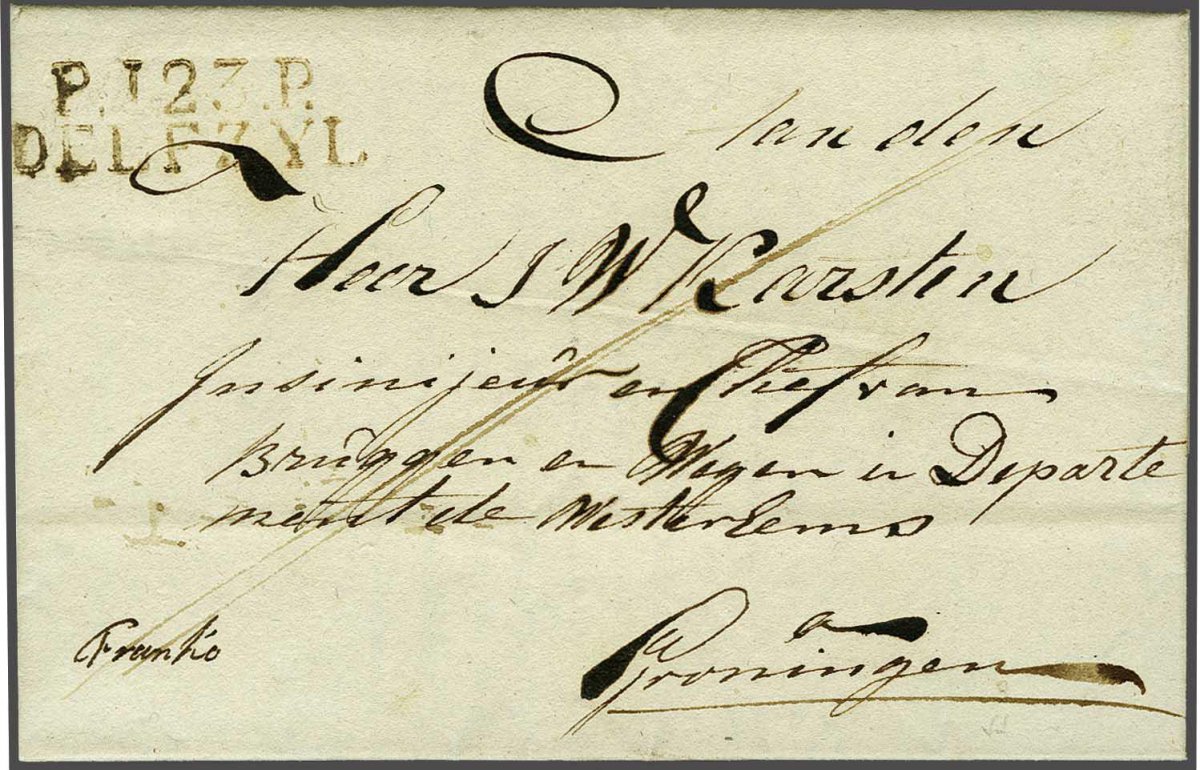 P.123.P.
DELFZYL
Aan den
Heer J W Karsten
Insinijeur en Chef van
Bruggen en Wegen in Departe
ment de Wester Eems
a
Groningen
Franko